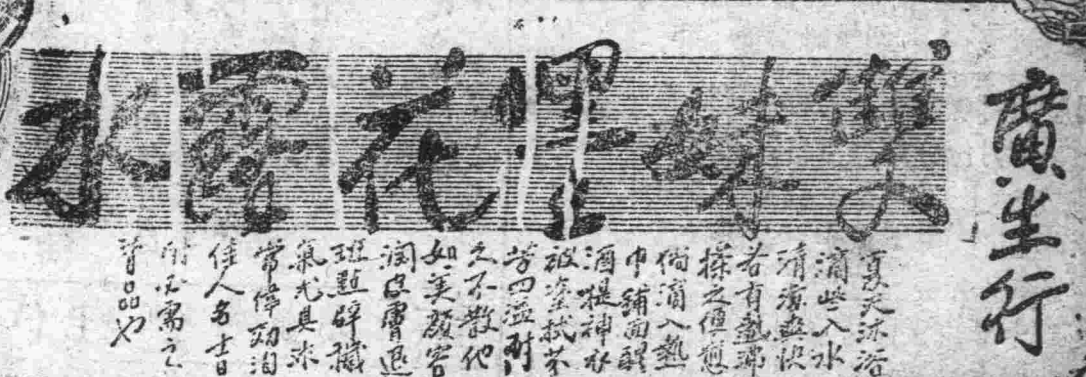 廣生行
雙妹嚜花露水
夏天沐浴
滴些入水
清涼爽快
若有熱痱
搽之便愈
倘滴入熱
巾鋪面醒
酒提神衣
服塗拭芬
芳四溢耐
久不散他
如美顏容
潤皮膚退
斑點辟穢
氣尤具非
常偉効洵
佳人名士日
用必需之
妙品也